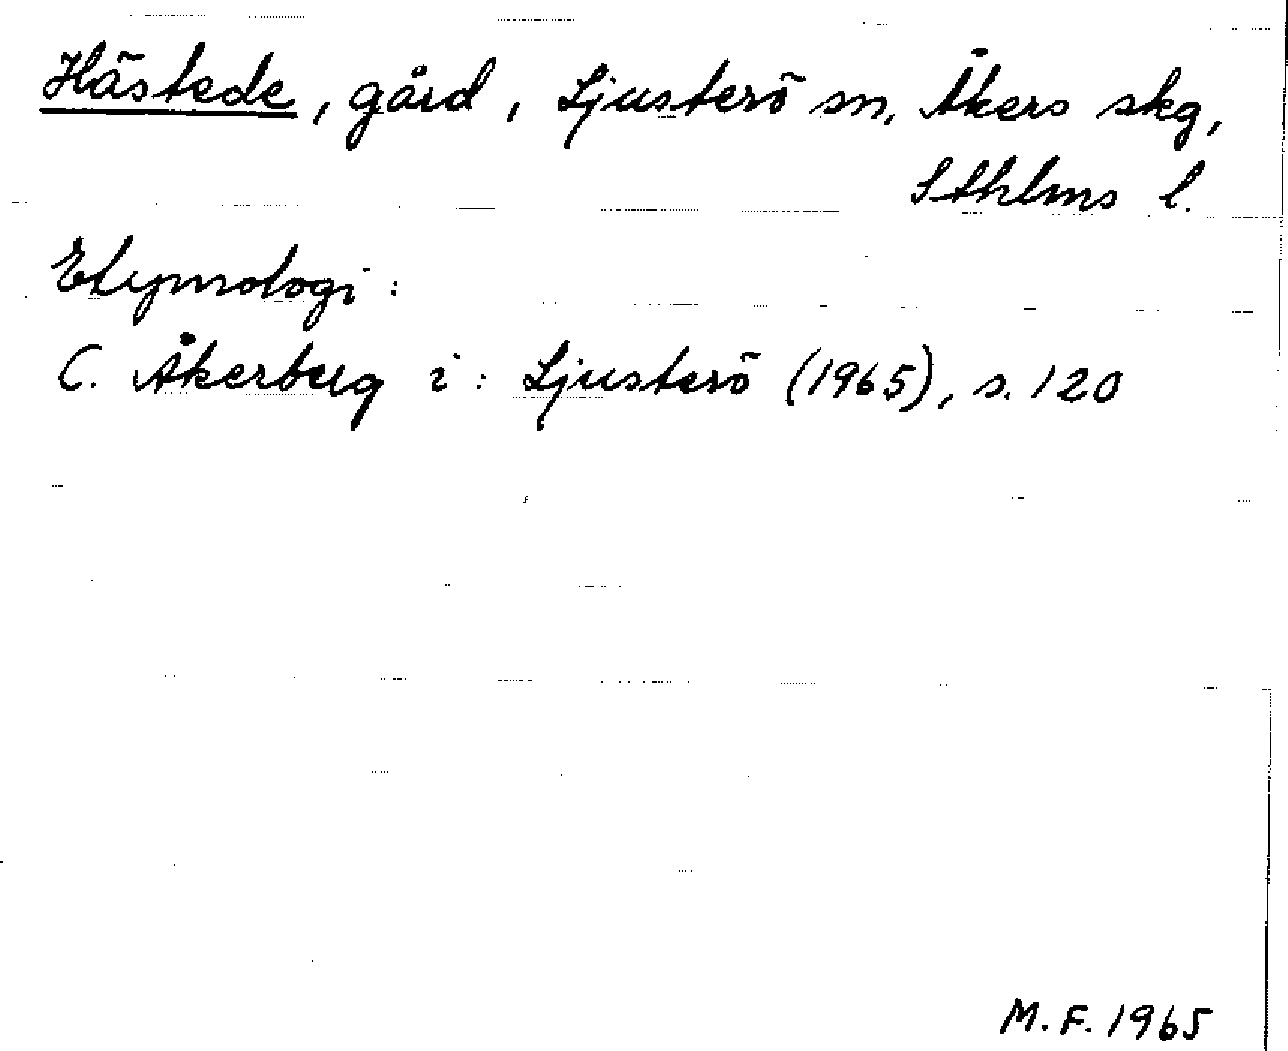 Hästede, gård, Ljusterö sn, Åkers skg,
Sthlms l.
Etymologi:
C. Åkerberg i: Ljusterö (1965), s. 120
M. F. 1965